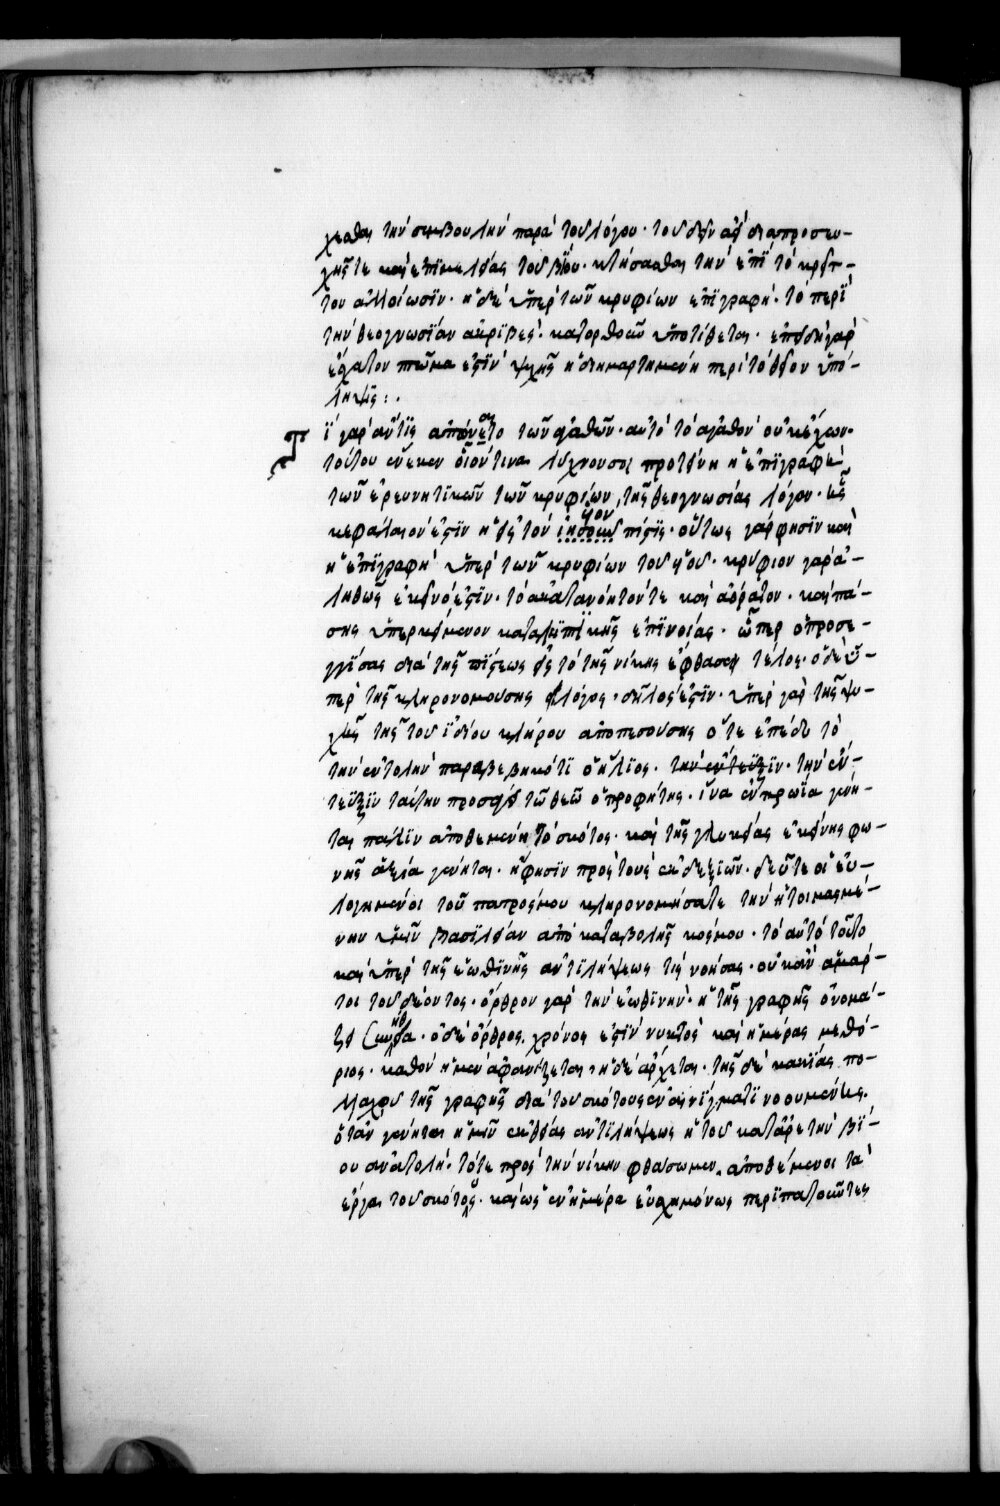 χεσθαι τὴν συμβουλὴν παρὰ τοῦ λόγου· τοῦ δεῖν ἀεὶ διαπροσευ-
χῆς τε καὶ ἐπιμελείας τοῦ βίου· κτήσασθαι τὴν ἐπὶ τὸ κρεῖτ-
τον ἀλλοίωσιν· ἡ δὲ ὑπὲρ τῶν κρυφίων ἐπιγραφὴ· τὸ περὶ
τὴν θεογνωσίαν ἀκριβὲς· κατορθοῦν ὑποτίθεται· ἐπειδὴ γὰρ
ἔσχατον πτῶμα ἐστὶν ψυχῆς ἡ διημαρτημένη περὶ τὸ θεῖον ὑπό-
ληψις:·
Τί γὰρ ἄν τις ἀπόναιτο τῶν ἀγαθῶν· αὐτὸ τὸ ἀγαθὸν οὐκ ἔχων·
τούτου ἕνεκεν οἷόν τινα λυχνοῦσα προτείνει ἡ ἐπιγραφὴ
τῶν ἐρευνητικῶν τῶν κρυφίων, τῆς θεογνωσίας λόγον· ἧς
κεφάλαιον ἐστὶν ἡ εἰς τὸν υἱὸν πίστις· οὕτως γάρ φησιν καὶ
ἡ ἐπιγραφὴ ὑπὲρ τῶν κρυφίων τοῦ υἱοῦ· κρύφιον γὰρ ἀ-
ληθῶς ἐκεῖνό ἐστιν· τὸ ἀκατανόητόν τε καὶ ἀόρατον· καὶ πά-
σης ὑπερκείμενον καταληπτικῆς ἐπινοίας· ᾧπερ ὁ προσε-
γγίσας διὰ τῆς πίστεως εἰς τὸ τῆς νίκης ἔφθασεν τέλος· ὁ δὲ ὑ-
πὲρ τῆς κληρονομούσης λόγος· δῆλος ἐστὶν· ὑπὲρ γὰρ τῆς ψυ-
χῆς τῆς τοῦ ἰδίου κλήρου ἀποπεσούσης ὅτε ἐπέδυ τῷ
τὴν ἐντολὴν παραβεβηκότι ὁ ἥλιος· τὴν ἔντευξιν· τὴν ἔν-
τευξιν ταύτην προσάγει τῷ θεῷ ὁ προφήτης· ἵνα ἐν πρωΐα γένη-
ται πάλιν ἀποθεμένη τὸ σκότος· καὶ τῆς γλυκείας ἐκείνης φω-
νῆς ἀξία γένηται· ἥ φησιν πρὸς τοὺς ἐκ δεξιῶν· δεῦτε οἱ εὐ-
λογημένοι τοῦ πατρός μου κληρονομήσατε τὴν ἡτοιμασμέ-
νην ὑμῖν βασιλείαν ἀπὸ καταβολῆς κόσμου· τὸ αὐτὸ τοῦτο
καὶ ὑπὲρ τῆς ἑωθινῆς ἀντιλήψεως τίς νοήσας· οὐκ ἂν ἁμάρ-
τοι τοῦ δέοντος· ὄρθρον γὰρ τὴν ἑωθινὴν· ἡ τῆς γραφῆς ὀνομά-
ζει συνήθεια· ὁ δὲ ὄρθρος, χρόνος ἐστὶν νυκτὸς καὶ ἡμέρας μεθό-
ριος· καθ᾽ ὃν ἡ μὲν ἀφανίζεται, ἡ δὲ ἄρχεται· τῆς δὲ κακίας πο-
λλαχοῦ τῆς γραφῆς διὰ τοῦ σκότους ἐν αἰνίγματι νοουμένης·
ὅταν γένηται ἡμῖν ἐκ θείας ἀντιλήψεως ἡ τοῦ κατ᾽ ἀρετὴν βί-
ου ἀνατολὴ· τότε πρὸς τὴν νίκην φθάσωμεν, ἀποθέμενοι τὰ
ἔργα τοῦ σκότους· καὶ ὡς ἐν ἡμέρα εὐσχημόνως περιπατοῦντες